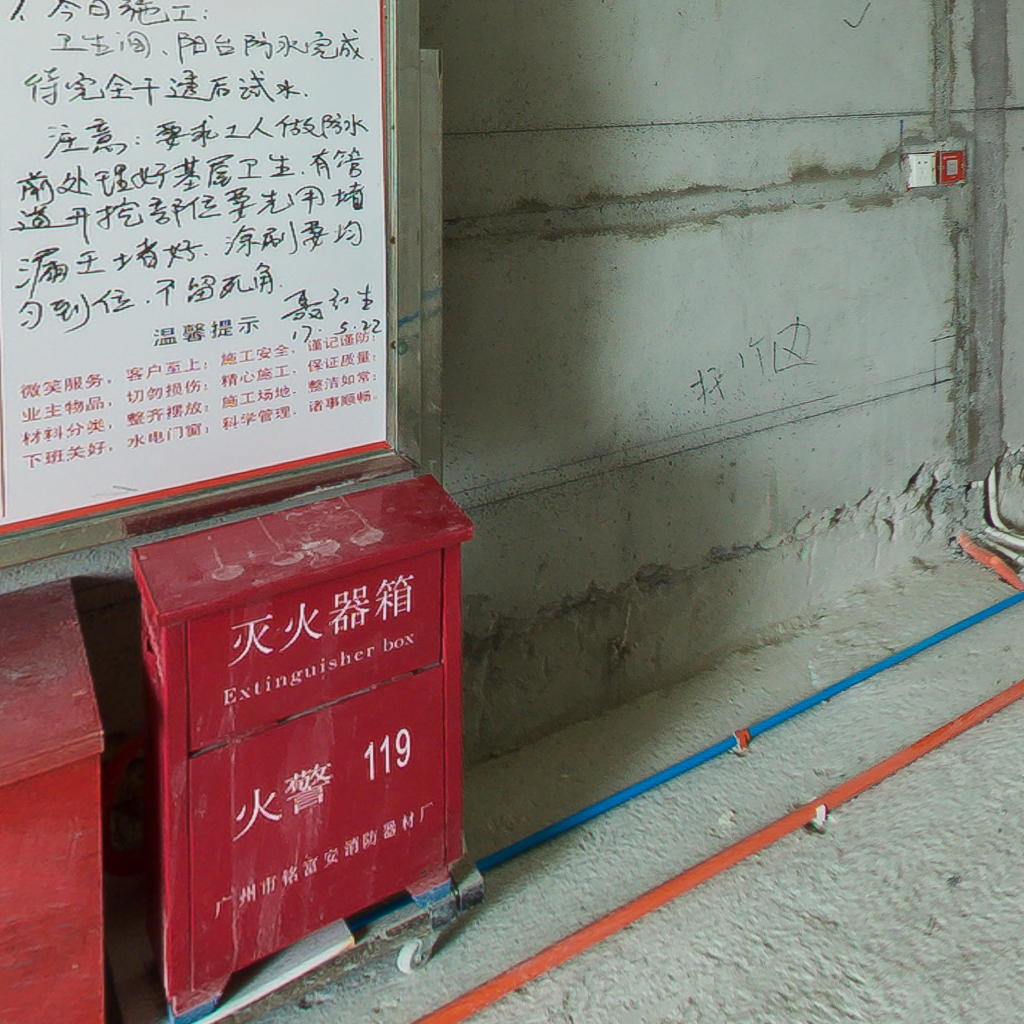 1. 今日施工：
卫生间、阳台防水完成
待完全干透后试水.
注意：要求工人做防水
前处理好基层卫生.有管
道开挖部位要先用堵
漏王堵好.涂刷要均
匀到位.不留死角.
17.5.22
温馨提示
微笑服务，客户至上；施工安全，谨记谨防；
业主物品，切勿损伤；精心施工，保证质量；
材料分类，整齐摆放；施工场地，整洁如常；
下班关好，水电门窗；科学管理，诸事顺畅。
灭火器箱
Extinguisher box
火警 119
广州市铭富安消防器材厂